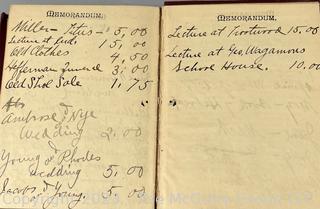 MEMORANDUM.
Miller - Titus - 5,00
Lecture at 15,00
Old Clothes 4,50
Hofferman funeral 3,00
Old Shoe Sale 1,75
Ambrose & Nye
Wedding 2,00
Young & Rhodes
wedding 5,00
Jacobs & Young 5,00
MEMORANDUM.
Lecture at Trotwood 15,00
Lecture at Geo. Wagamons
School House. 10,00